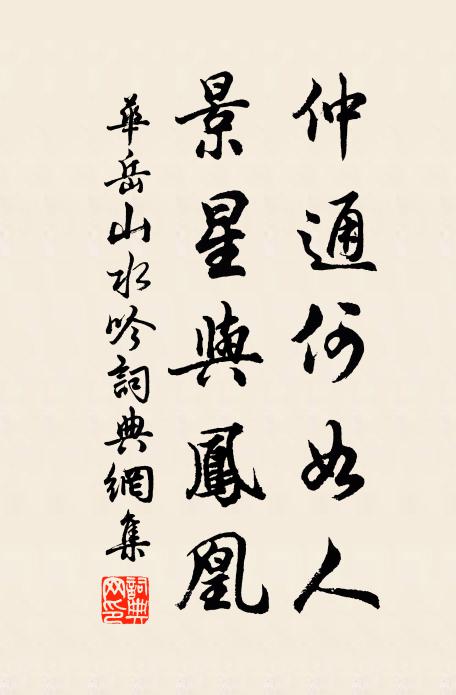 仲通何如人
景星與鳳凰
華岳山水吟詞典網集
詞典網印